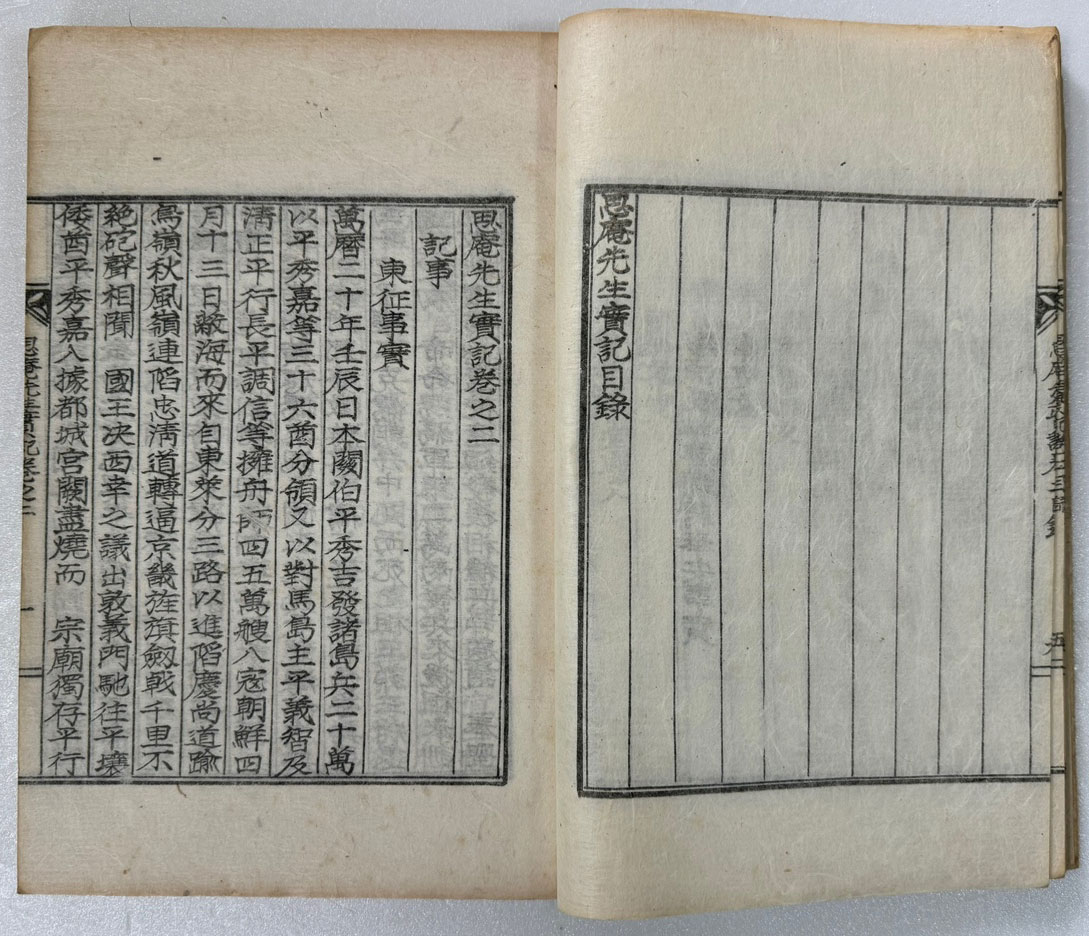 思庵先生實記目錄
思庵先生實記卷之二
記事
東征事實
萬曆二十年壬辰日本關伯平秀吉發諸島兵二十萬
以平秀嘉等三十六酋分領又以對馬島主平義智及
淸正平行長平調信等擁舟師四五萬艘入寇朝鮮四
月十三日蔽海而來自東萊分三路以進陷慶尙道踰
鳥嶺秋風嶺連陷忠淸道轉逼京畿旌旗劒戟千里不
絶砲聲相聞 國王決西幸之議出敦義門馳往平壤
倭酋平秀嘉入據都城宮闕盡燒而 宗廟獨存平行
思庵先生實記卷之二
一